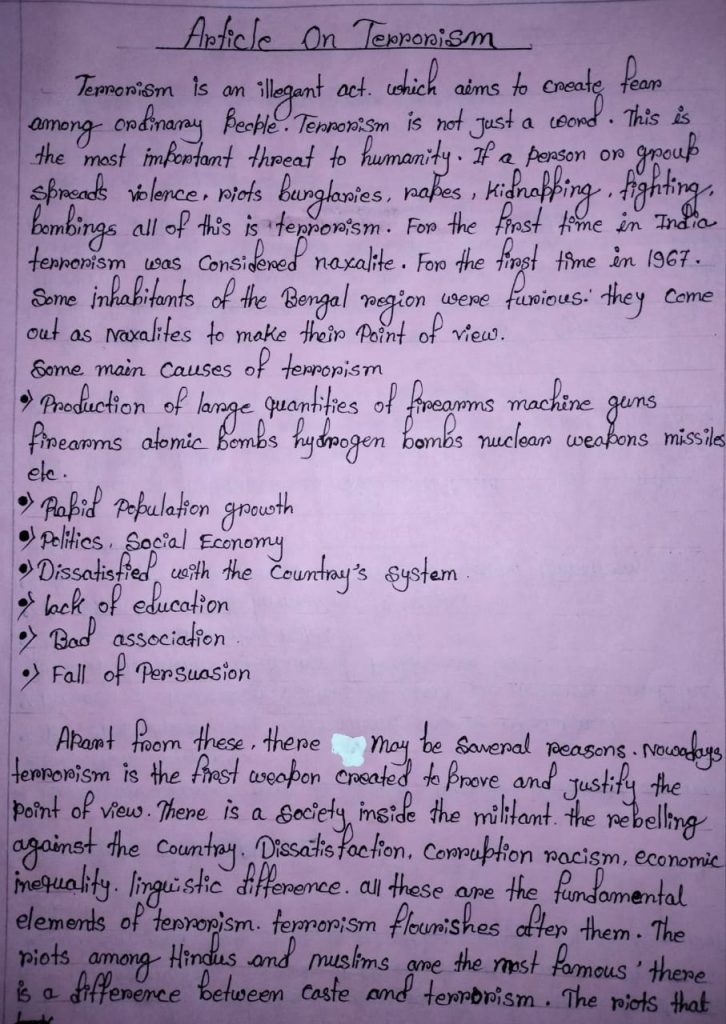 Article On Terrorism
Terrorism is an illegant act. which aims to create fear
among ordinary People. Terrorism is not just a word. This is
the most important threat to humanity. If a person or group
spreads violence, riots burglaries, rapes, kidnapping, fighting,
bombings all of this is terrorism. For the first time in India
terrorism was Considered naxalite. For the first time in 1967.
Some inhabitants of the Bengal region were furious. they come
out as Naxalites to make their Point of view.
Some main Causes of terrorism
Production of large quantities of firearms machine guns
firearms atomic bombs hydrogen bombs nuclear weapons missiles
etc.
Rapid Population growth
Politics, Social Economy
Dissatisfied with the Country's System.
lack of education
Bad association.
Fall of Persuasion
Apart from these, there may be Saveral reasons. Nowadays
terrorism is the first weapon created to Prove and justify the
Point of view. There is a Society inside the militant. the rebelling
against the Country. Dissatisfaction, Corruption racism, economic
inequality. linguistic difference. all these are the fundamental
elements of terrorism. terrorism flourishes after them. The
riots among Hindus and muslims are the most famous 'there
is a difference between Caste and terrorism. The riots that